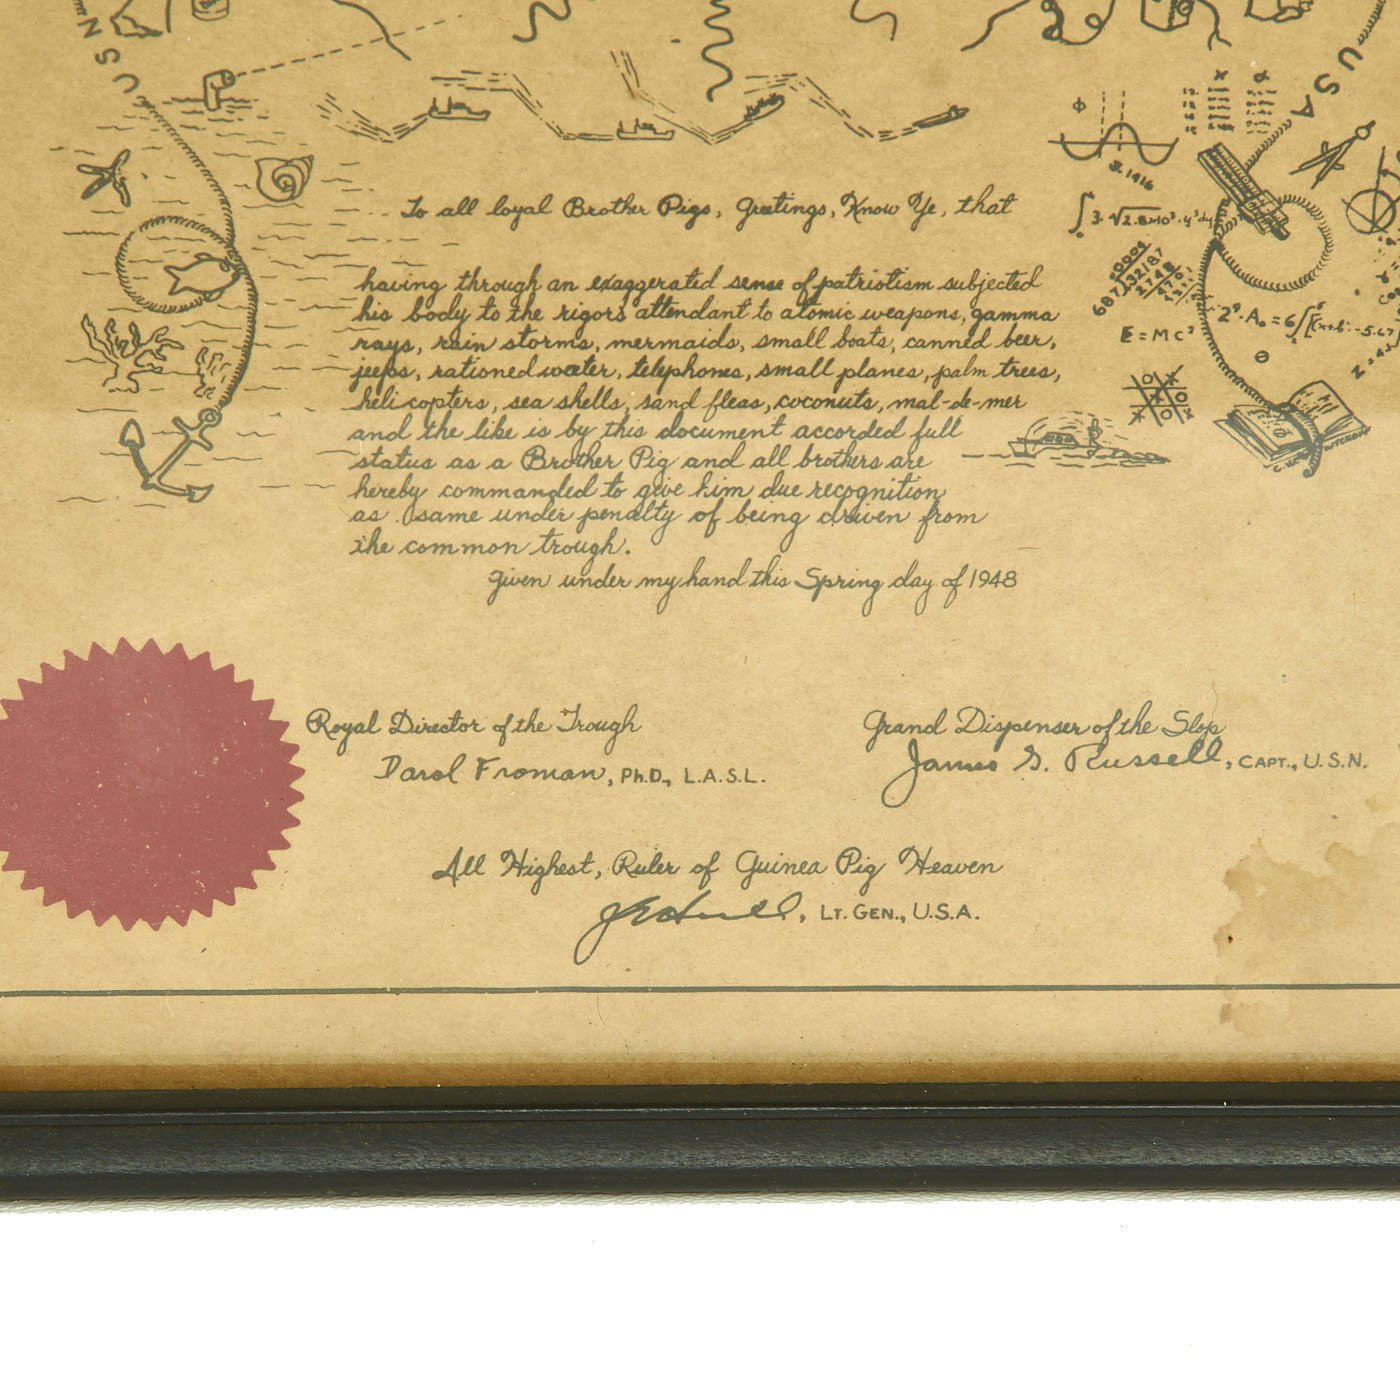 USN
USA
x
Φ
3.1416
E = MC²
To all loyal Brother Pigs, Greetings, Know Ye, that
having through an exaggerated sense of patriotism subjected
his body to the rigors attendant to atomic weapons, gamma
rays, rain storms, mermaids, small boats, canned beer,
jeeps, rationed water, telephones, small planes, palm trees,
helicopters, sea shells, sand fleas, coconuts, mal-de-mer
and the like is by this document accorded full
status as a Brother Pig and all brothers are
hereby commanded to give him due recognition
as same under penalty of being driven from
the common trough.
Given under my hand this Spring day of 1948
Royal Director of the Trough
Darol Froman, Ph.D., L.A.S.L.
Grand Dispenser of the Slop
James S. Russell, CAPT., U.S.N.
All Highest, Ruler of Guinea Pig Heaven
LT. GEN., U.S.A.